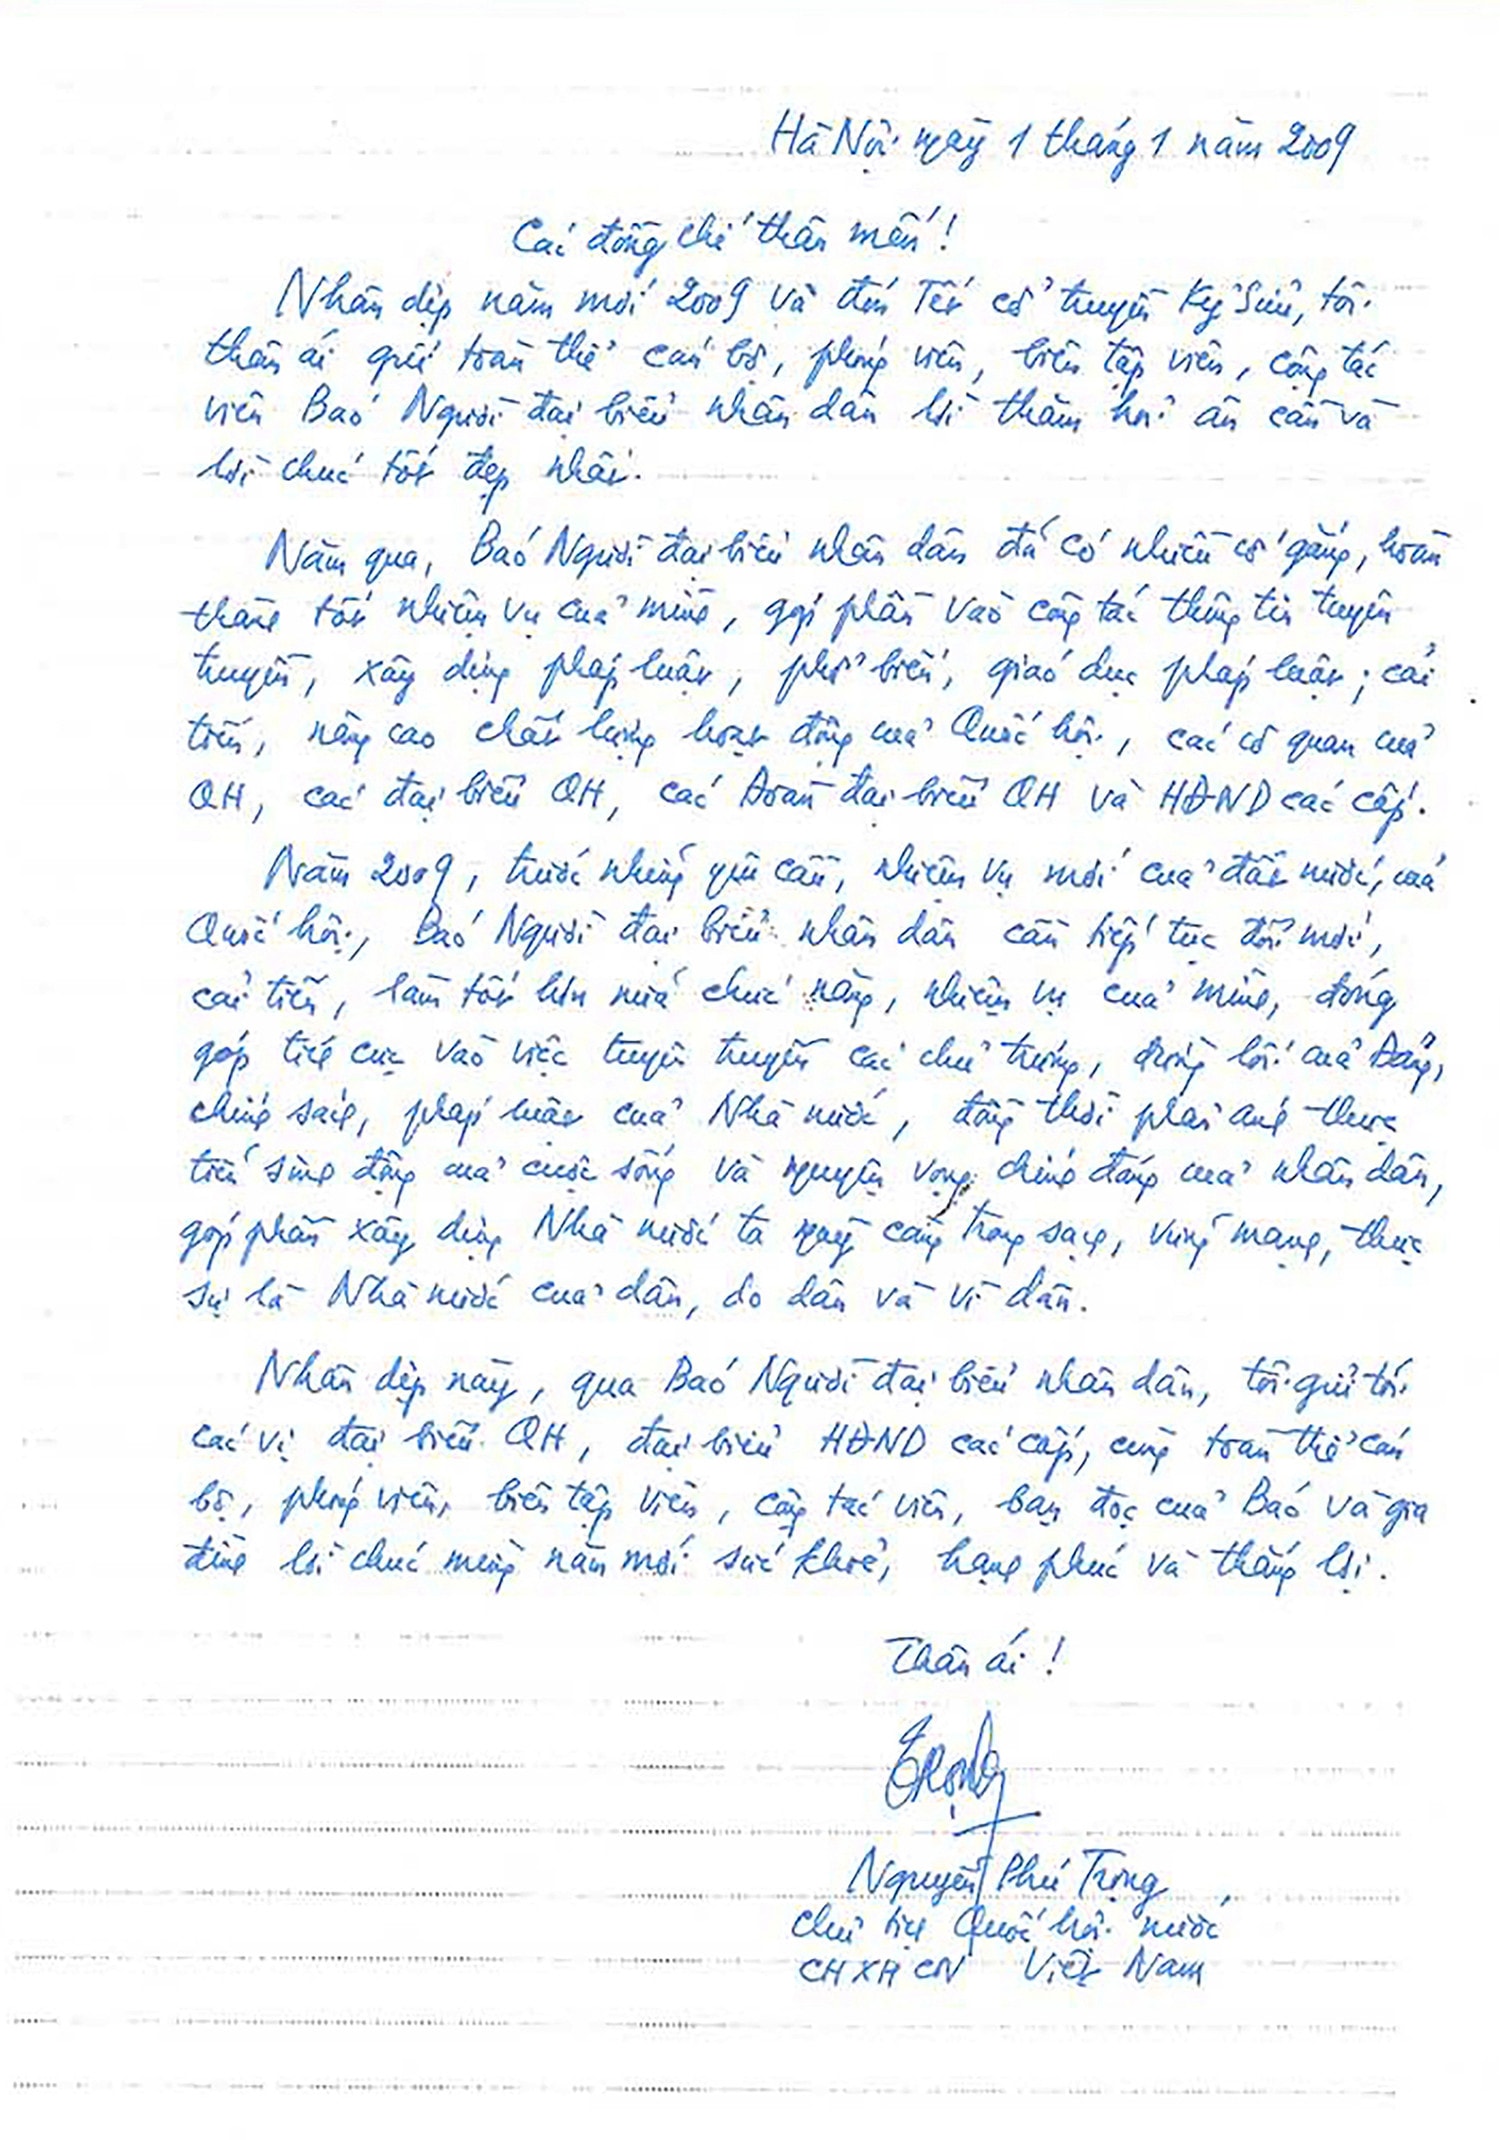 Hà Nội ngày 1 tháng 1 năm 2009
Các đồng chí thân mến!
Nhân dịp năm mới 2009 và đón Tết cổ truyền Kỷ Sửu, tôi
thân ái gửi toàn thể cán bộ, phóng viên, biên tập viên, cộng tác
viên Báo Người đại biểu nhân dân lời thăm hỏi ân cần và
lời chúc tốt đẹp nhất.
Năm qua, Báo Người đại biểu nhân dân đã có nhiều cố gắng, hoàn
thành tốt nhiệm vụ của mình, góp phần vào công tác thông tin tuyên
truyền, xây dựng pháp luật, phổ biến, giáo dục pháp luật; cải
tiến, nâng cao chất lượng hoạt động của Quốc hội, các cơ quan của
QH, các đại biểu QH, các Đoàn đại biểu QH và HĐND các cấp.
Năm 2009, trước những yêu cầu, nhiệm vụ mới của đất nước, của
Quốc hội, Báo Người đại biểu nhân dân cần tiếp tục đổi mới,
cải tiến, làm tốt hơn nữa chức năng, nhiệm vụ của mình, đóng
góp tích cực vào việc tuyên truyền các chủ trương, đường lối của Đảng,
chính sách, pháp luật của Nhà nước, đồng thời phản ánh thực
tiễn sinh động của cuộc sống và nguyện vọng chính đáng của nhân dân,
góp phần xây dựng Nhà nước ta ngày càng trong sạch, vững mạnh, thực
sự là Nhà nước của dân, do dân và vì dân.
Nhân dịp này, qua Báo Người đại biểu nhân dân, tôi gửi tới
các vị đại biểu QH, đại biểu HĐND các cấp, cùng toàn thể cán
bộ, phóng viên, biên tập viên, cộng tác viên, bạn đọc của Báo và gia
đình lời chúc mừng năm mới sức khoẻ, hạnh phúc và thắng lợi.
Thân ái!
Trọng
Nguyễn Phú Trọng
Chủ tịch Quốc hội nước
CHXHCN Việt Nam